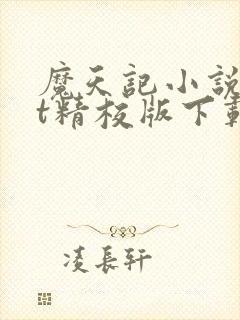 魔天記小說
t精校版下載
凌長軒